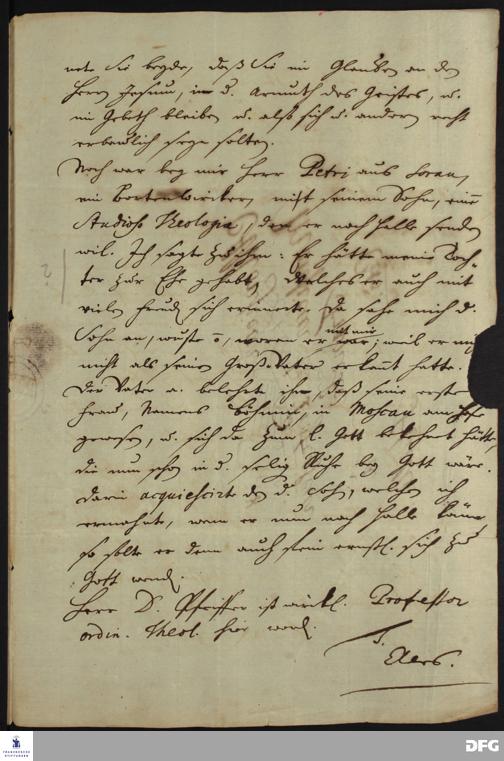 nete Sie beyde, daß Sie im Glauben an den
Herrn Jesum, in d. Armuth des Geistes, u.
im Gebeth bleiben u. also sich u. andern recht
erbaulich seyn solten.
Noch war bey mir Herr Petri aus Sorau,
ein Bortenwircker, mit seinem Sohn, eine
Studioso Theologia, den er nach Halle senden
wil. Ich sagte zu ihm: Er hätte meine Toch-
ter zur Ehe gehabt, welches er auch mit
vielen freud sich erinnerte. Da sahe mich d.
Sohn an, wuste o, woran er mit mir war; weil er mich
nicht als seinen Groß-Vater erkannt hatte.
Der Vater a. belehrte ihn, daß seine erste
Frau, Namens Böhmin, in Moscau am
gewesen, u. sich da zum l. Gott bekehret hätte,
die nun schon in d. selig Ruhe bey Gott wäre.
Darin acquiescirte den d. Sohn, welchen ich
ermahnte, wenn er nun nach Halle käme,
so solte er denn auch fein ernstl. sich zu
Gott wend.
Herr D. Pfeiffer ist würkl. Professor
ordin. Theol. hier word.
S.
Elers.
FRANCKESCHE
STIFTUNGEN
DFG